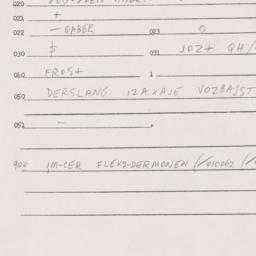 020
021 +
022 — QABER 023 0
030 $ 031 JOZ+ QH/
040 FROS+ 1
050 DERSLANG IZAXAJE VOZBAJST
052 —
900 IM-CER FLEKZ-DERMONEN (/010062 (/